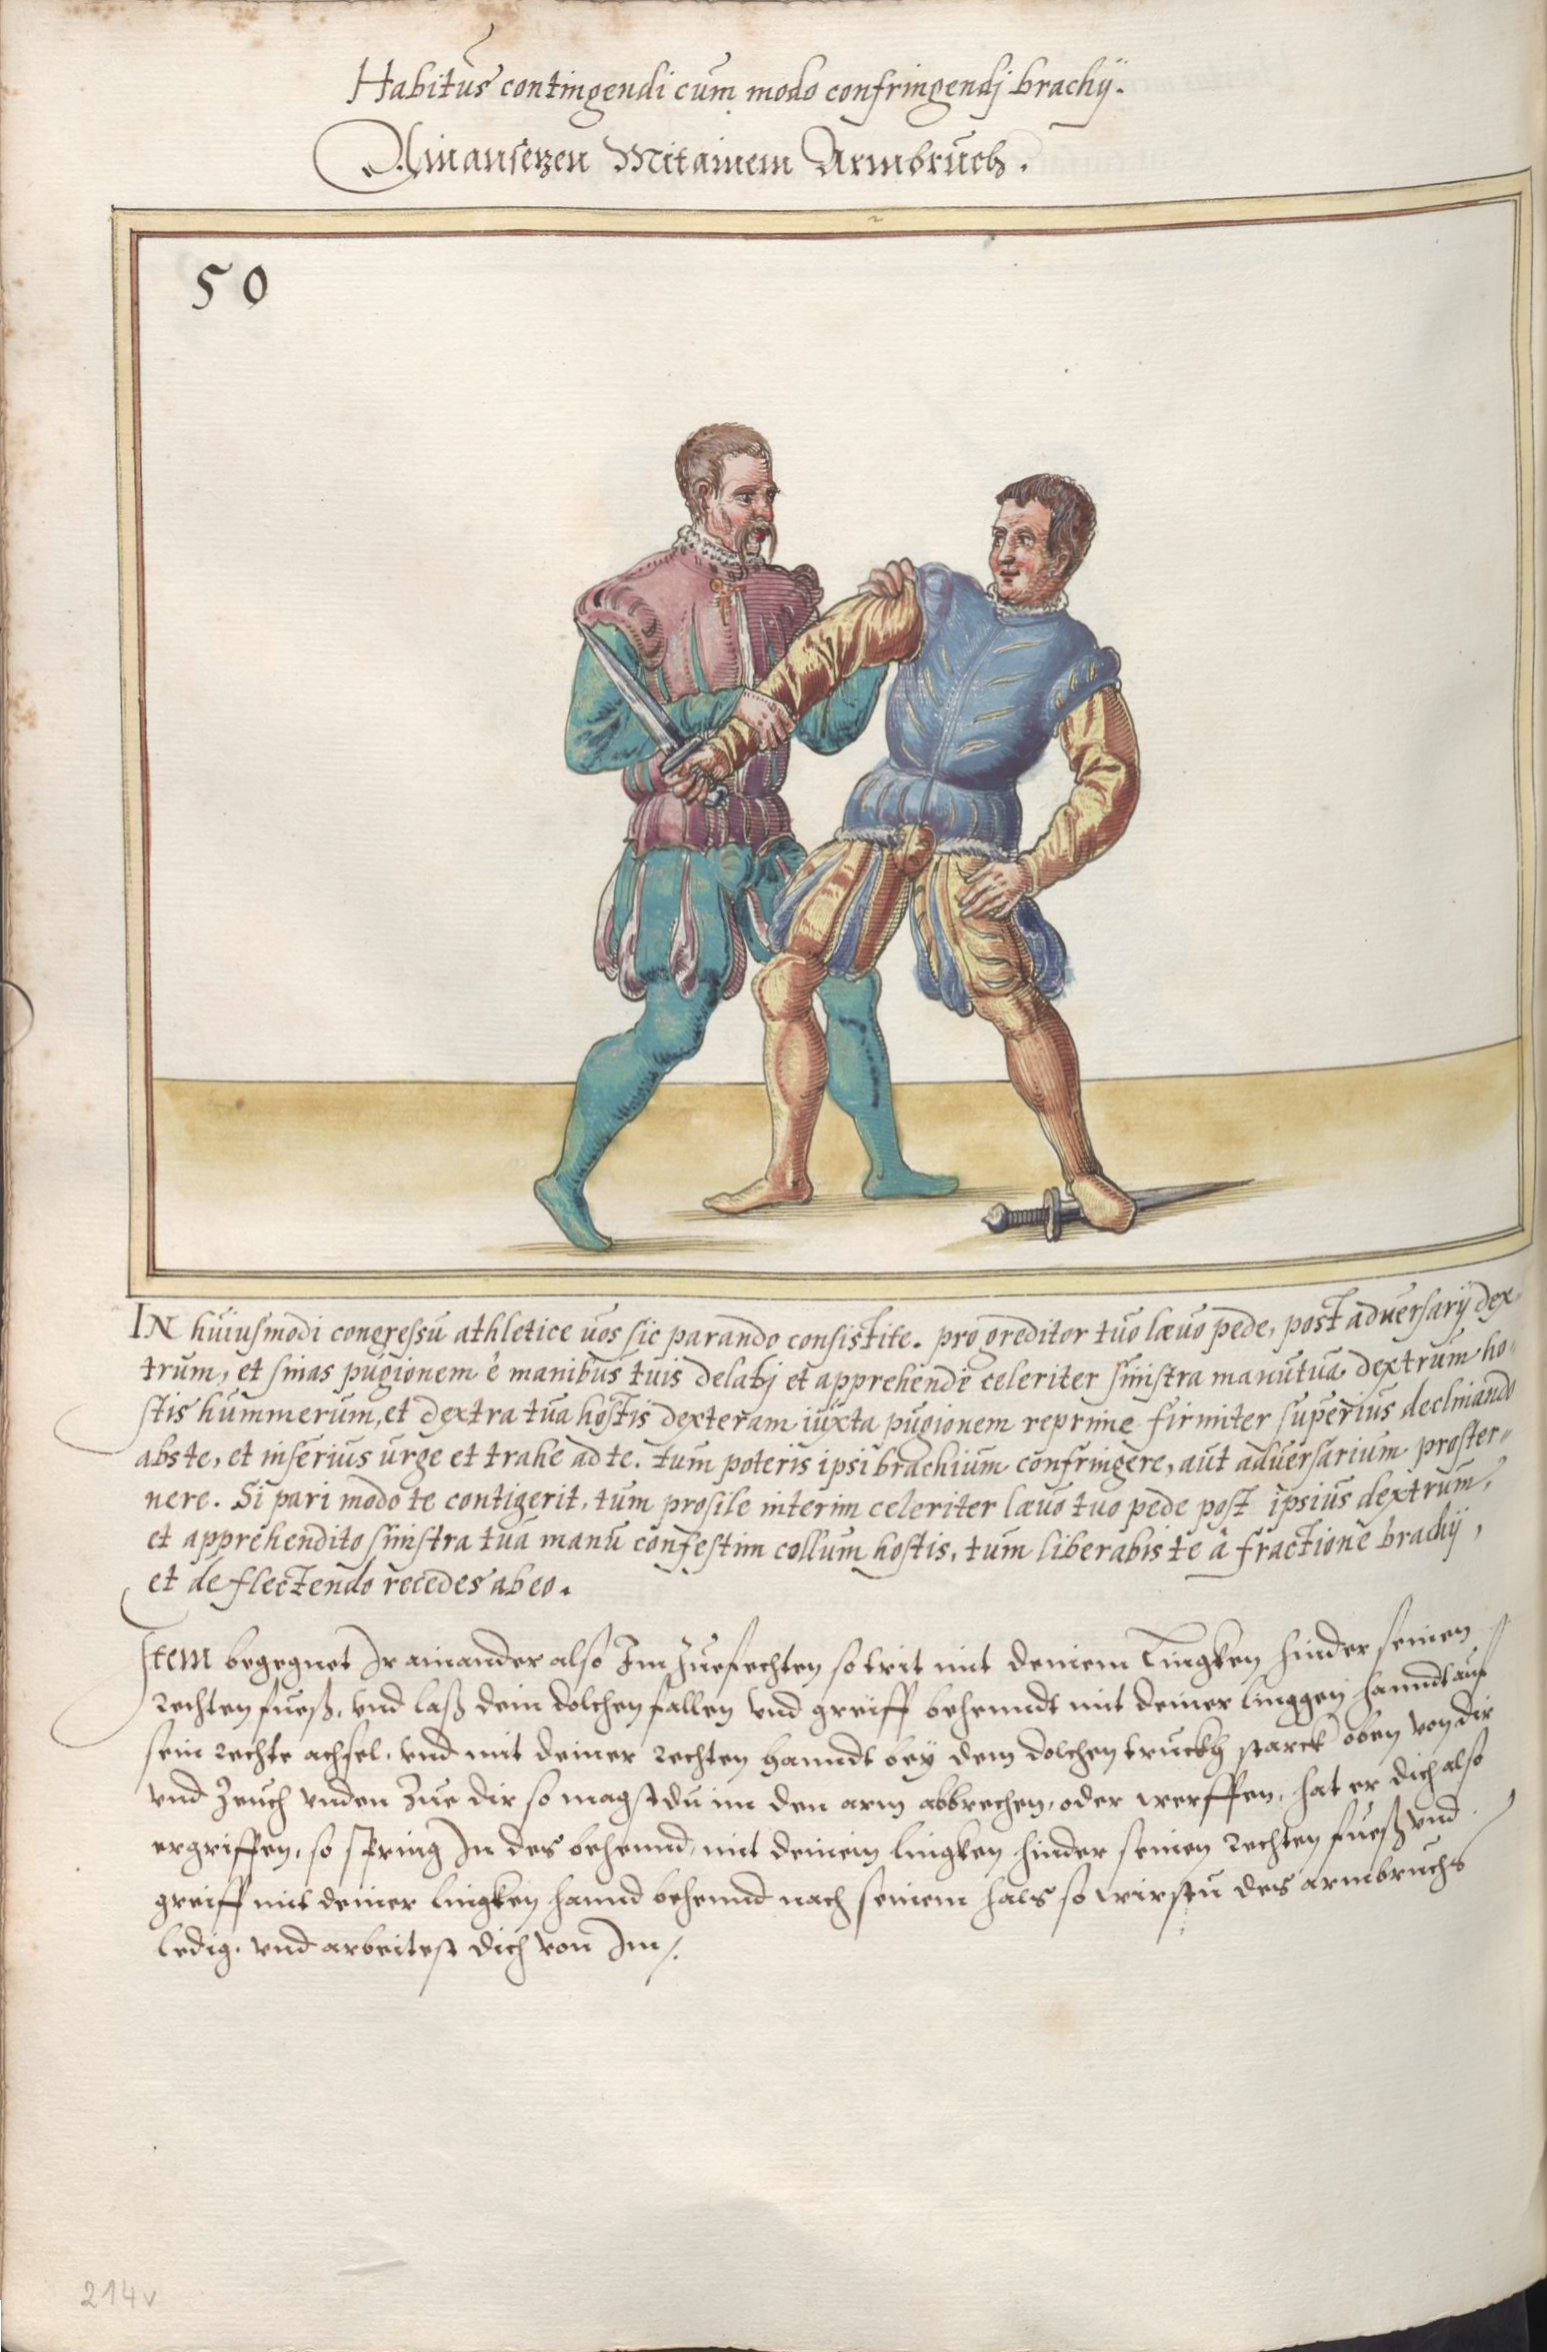 Habitus contingendi cum modo confringendj brachÿ.
Ain ansetzen Mit ainem Armbruch.
50
IN huiusmodi congressu athletice uos sic parando consistite. progreditor tuo lævo pede, post adversarÿ dex-
trum, et sinas pugionem è manibus tuis delabj et apprehende celeriter sinistra manu tua dextrum ho-
stis hummerum, et dextra tua hostis dexteram iuxta pugionem reprime firmiter superius declinando
abs te, et inferius urge et trahe ad te. tum poteris ipsi brachium confringere, aut adversarium proster-
nere. Si pari modo te contigerit, tum prosile interim celeriter lævo tuo pede post ipsius dextrum,
et apprehendito sinistra tua manu confestim collum hostis, tum liberabis te â fractione brachÿ,
et deflectendo recedes ab eo.
Item begegnet Ir ainander also Im Zuefechten so trit mit deinem Lingken hinder seinen
rechten fueß, vnd laß dein dolchen fallen vnd greiff behenndt mit deiner linggen hanndt auf
sein rechte achsel, vnd mit deiner rechten hanndt beÿ dem dolchen truckh starck oben von dir
vnd zeuch vnden zue dir so magstdu im den arm abbrechen, oder werffen, hat er dich also
ergriffen, so spring In des behennd, mit deinem lingken hinder seinen rechten fueß vnd
greiff mit deiner lingken hannd behennd nach seinem hals so wirstu des armbruchs
ledig, vnd arbeitest dich von Im /.
214v